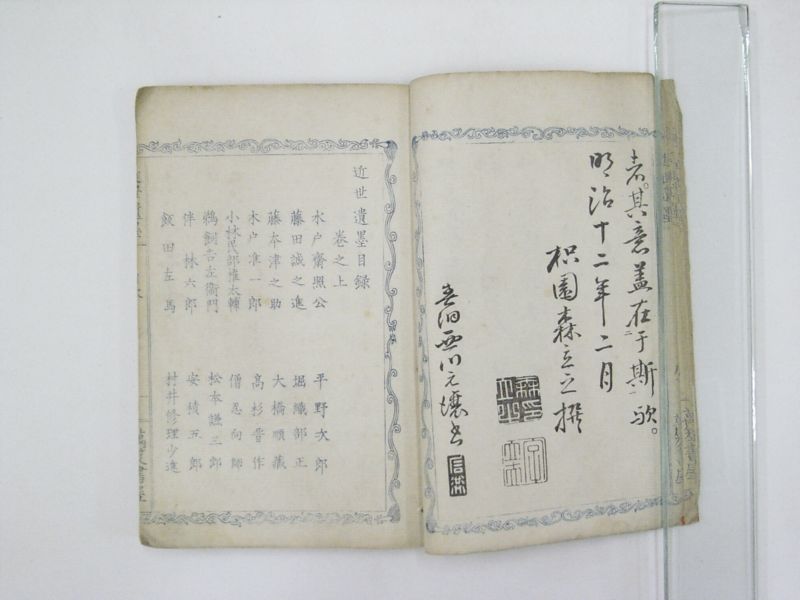 者。其意盖在于斯歟。
明治十二年二月
枳園森立之撰
西川元讓書
近世遺墨目録
巻之上
水户齋照公
平野次郎
藤田誠之進
堀織部正
藤本津之助
大橋順蔵
木户準一郎
高杉晋作
小林民部権大輔
僧忍向師
鵜飼吉左衛門
松本謙三郎
伴林六郎
安積五郎
飯田左馬
村井修理少進